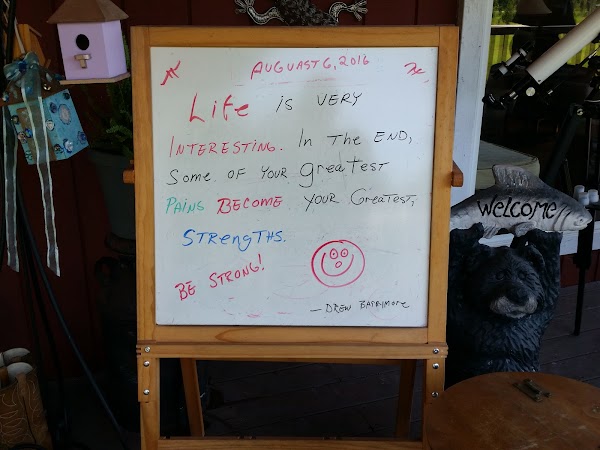 AUGUAST 6, 2016
Life is VERY
INTERESTING. IN THE END,
Some OF YOUR greatest
PAINS BECOME YOUR GREATEST,
STRengTHS.
BE STRONG!
— DREW BARRYMORE
WELCOME